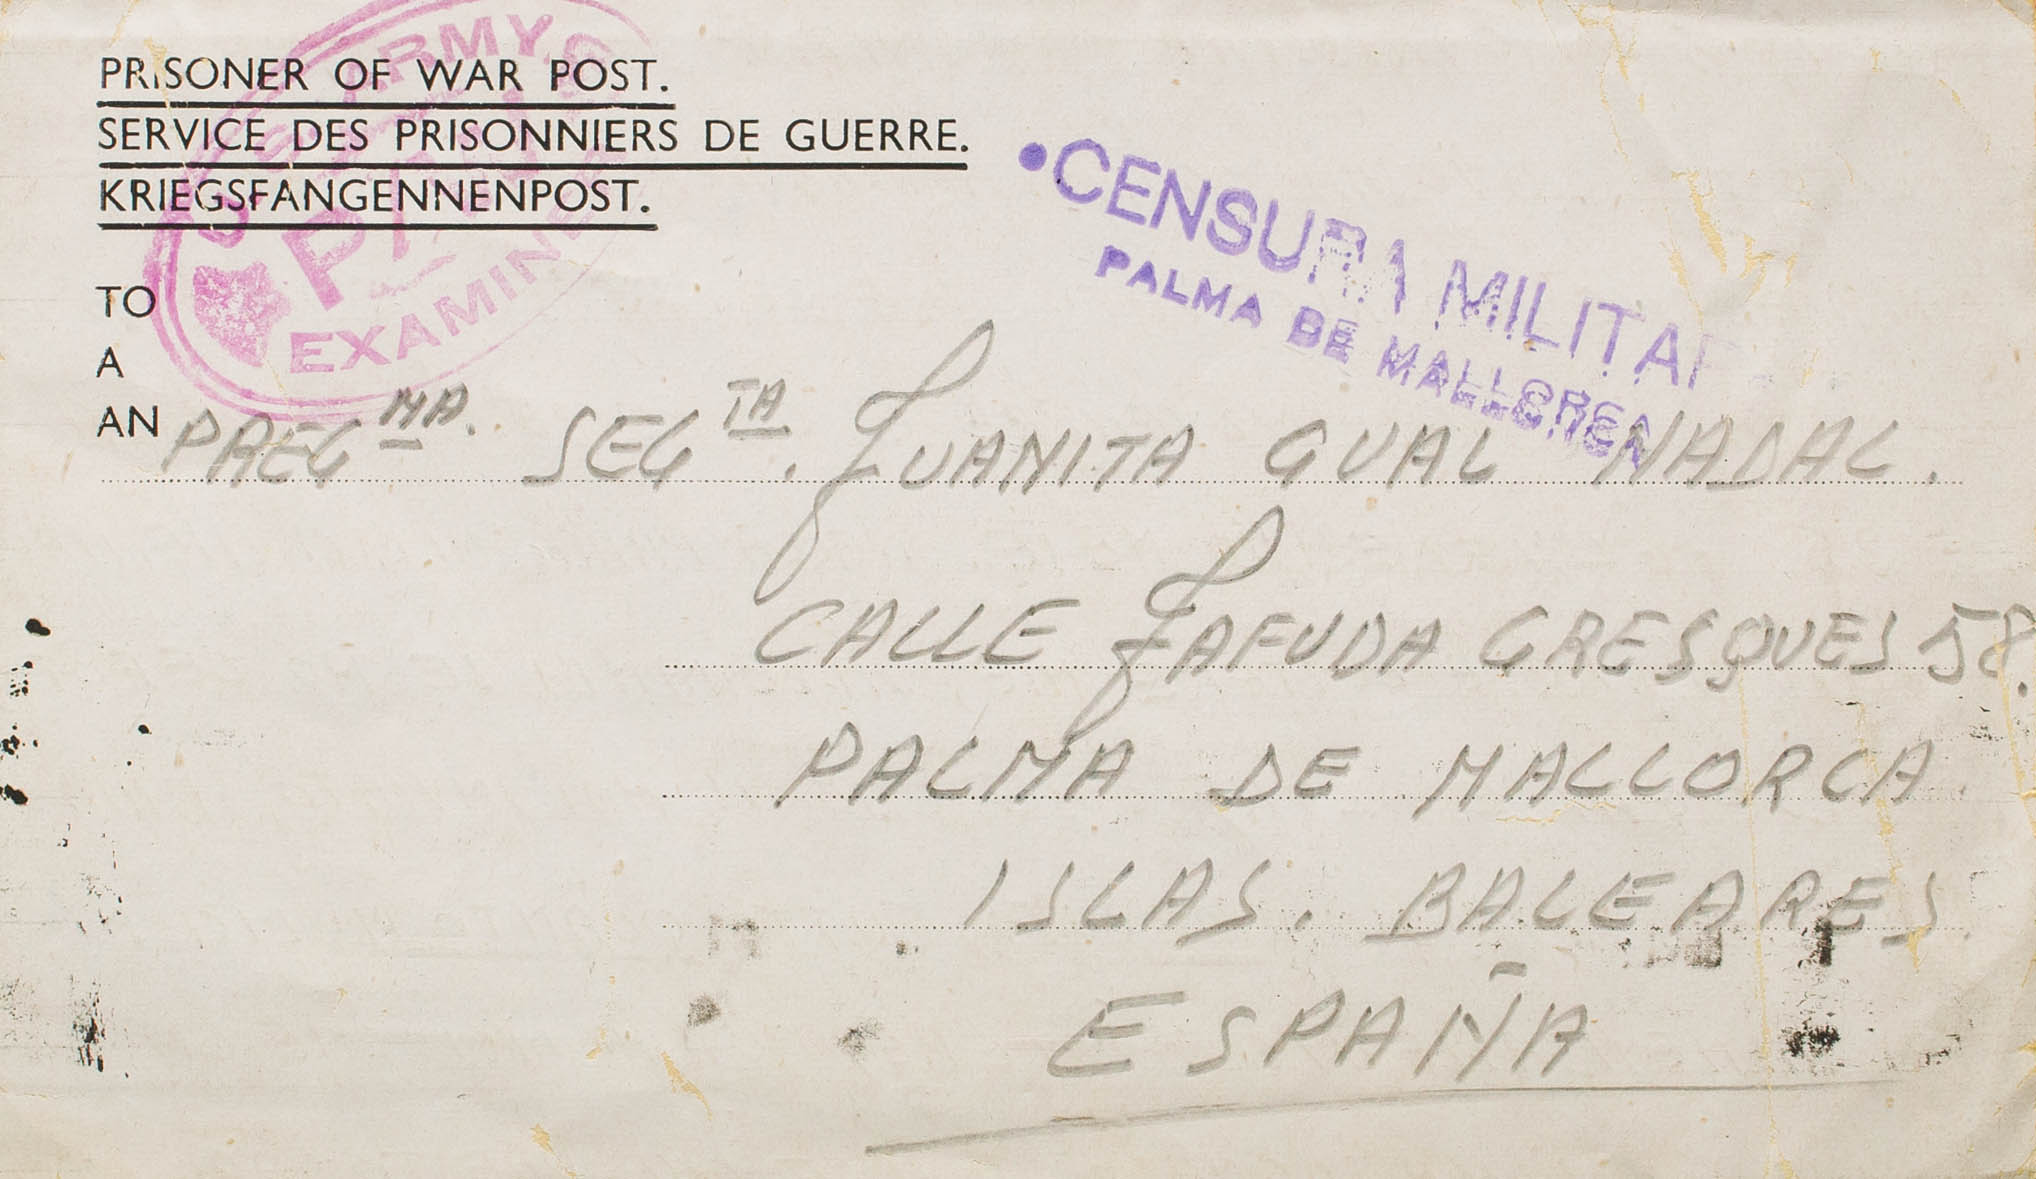 PRISONER OF WAR POST.
SERVICE DES PRISONNIERS DE GUERRE.
KRIEGSFANGENNENPOST.
ARMY
EXAMINER
•CENSURA MILITAR
PALMA DE MALLORCA
TO
A
AN
PREG MA. SEG TA. JUANITA GUAL NADAL.
CALLE JAFUDA GRESQUES 58.
PALMA DE MALLORCA
ISLAS. BALEARES.
ESPAÑA